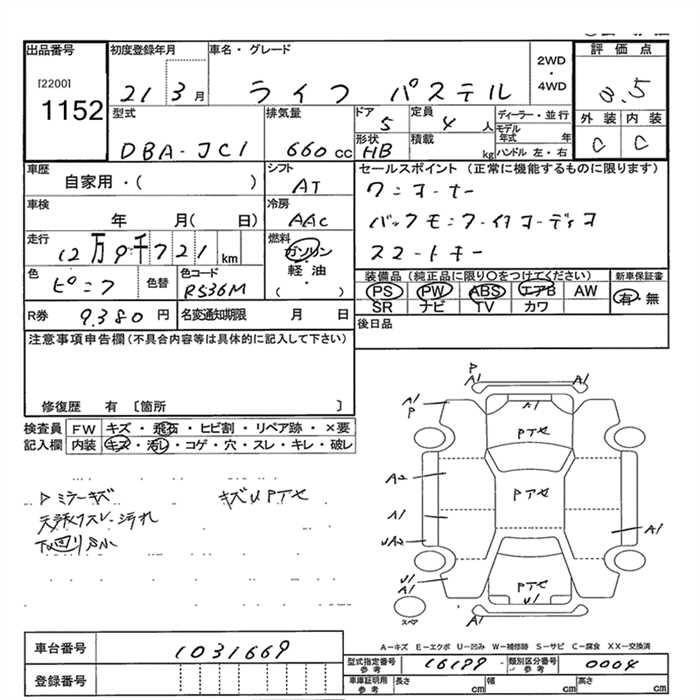 出品番号
[2200]
1152
初度登録年月
21 3月
車名・グレード
ライフ パステル
2WD
・
4WD
評価点
3.5
外装 内装
C C
型式
DBA-JC1
排気量
660cc
ドア
5
定員
4人
形状
HB
積載
kg
ディーラー・並行
モデル年式 年
ハンドル 左・右
車歴
自家用・( )
シフト
AT
セールスポイント(正常に機能するものに限ります)
ワンオーナー
バックモニター付オーディオ
スマートキー
車検
年 月( 日)
冷房
AAC
走行
12万9千721km
燃料
ガソリン
・
軽油
( )
色
ピンク
色替
色コード
R536M
装備品(純正品に限り○をつけてください)
PS PW ABS エアB AW
SR ナビ TV カワ
新車保証書
有・無
R券
9380円
名変通知期限 月 日
後日品
注意事項申告欄(不具合内容等は具体的に記入して下さい)
修復歴 有〔箇所 〕
検査員
記入欄
FW キズ・飛石・ヒビ割・リペア跡・×要
内装 キズ・汚レ・コゲ・穴・スレ・キレ・破レ
Dミラーキズ
キズUPTX
天張リスレ・汚れ
下回りS小
P
A1
A1
A1
P
A1
PTX
A2
PTX
A1
UA2
A1
U1
A1
PTX
U1
スペア
A―キズ E―エクボ U―凹み W―補修跡 S―サビ C―腐食 XX―交換済
車台番号
1031669
登録番号
型式指定番号
参考
16199
類別区分番号
参考
0004
車庫証明用
参考
長さ cm
幅 cm
高さ cm